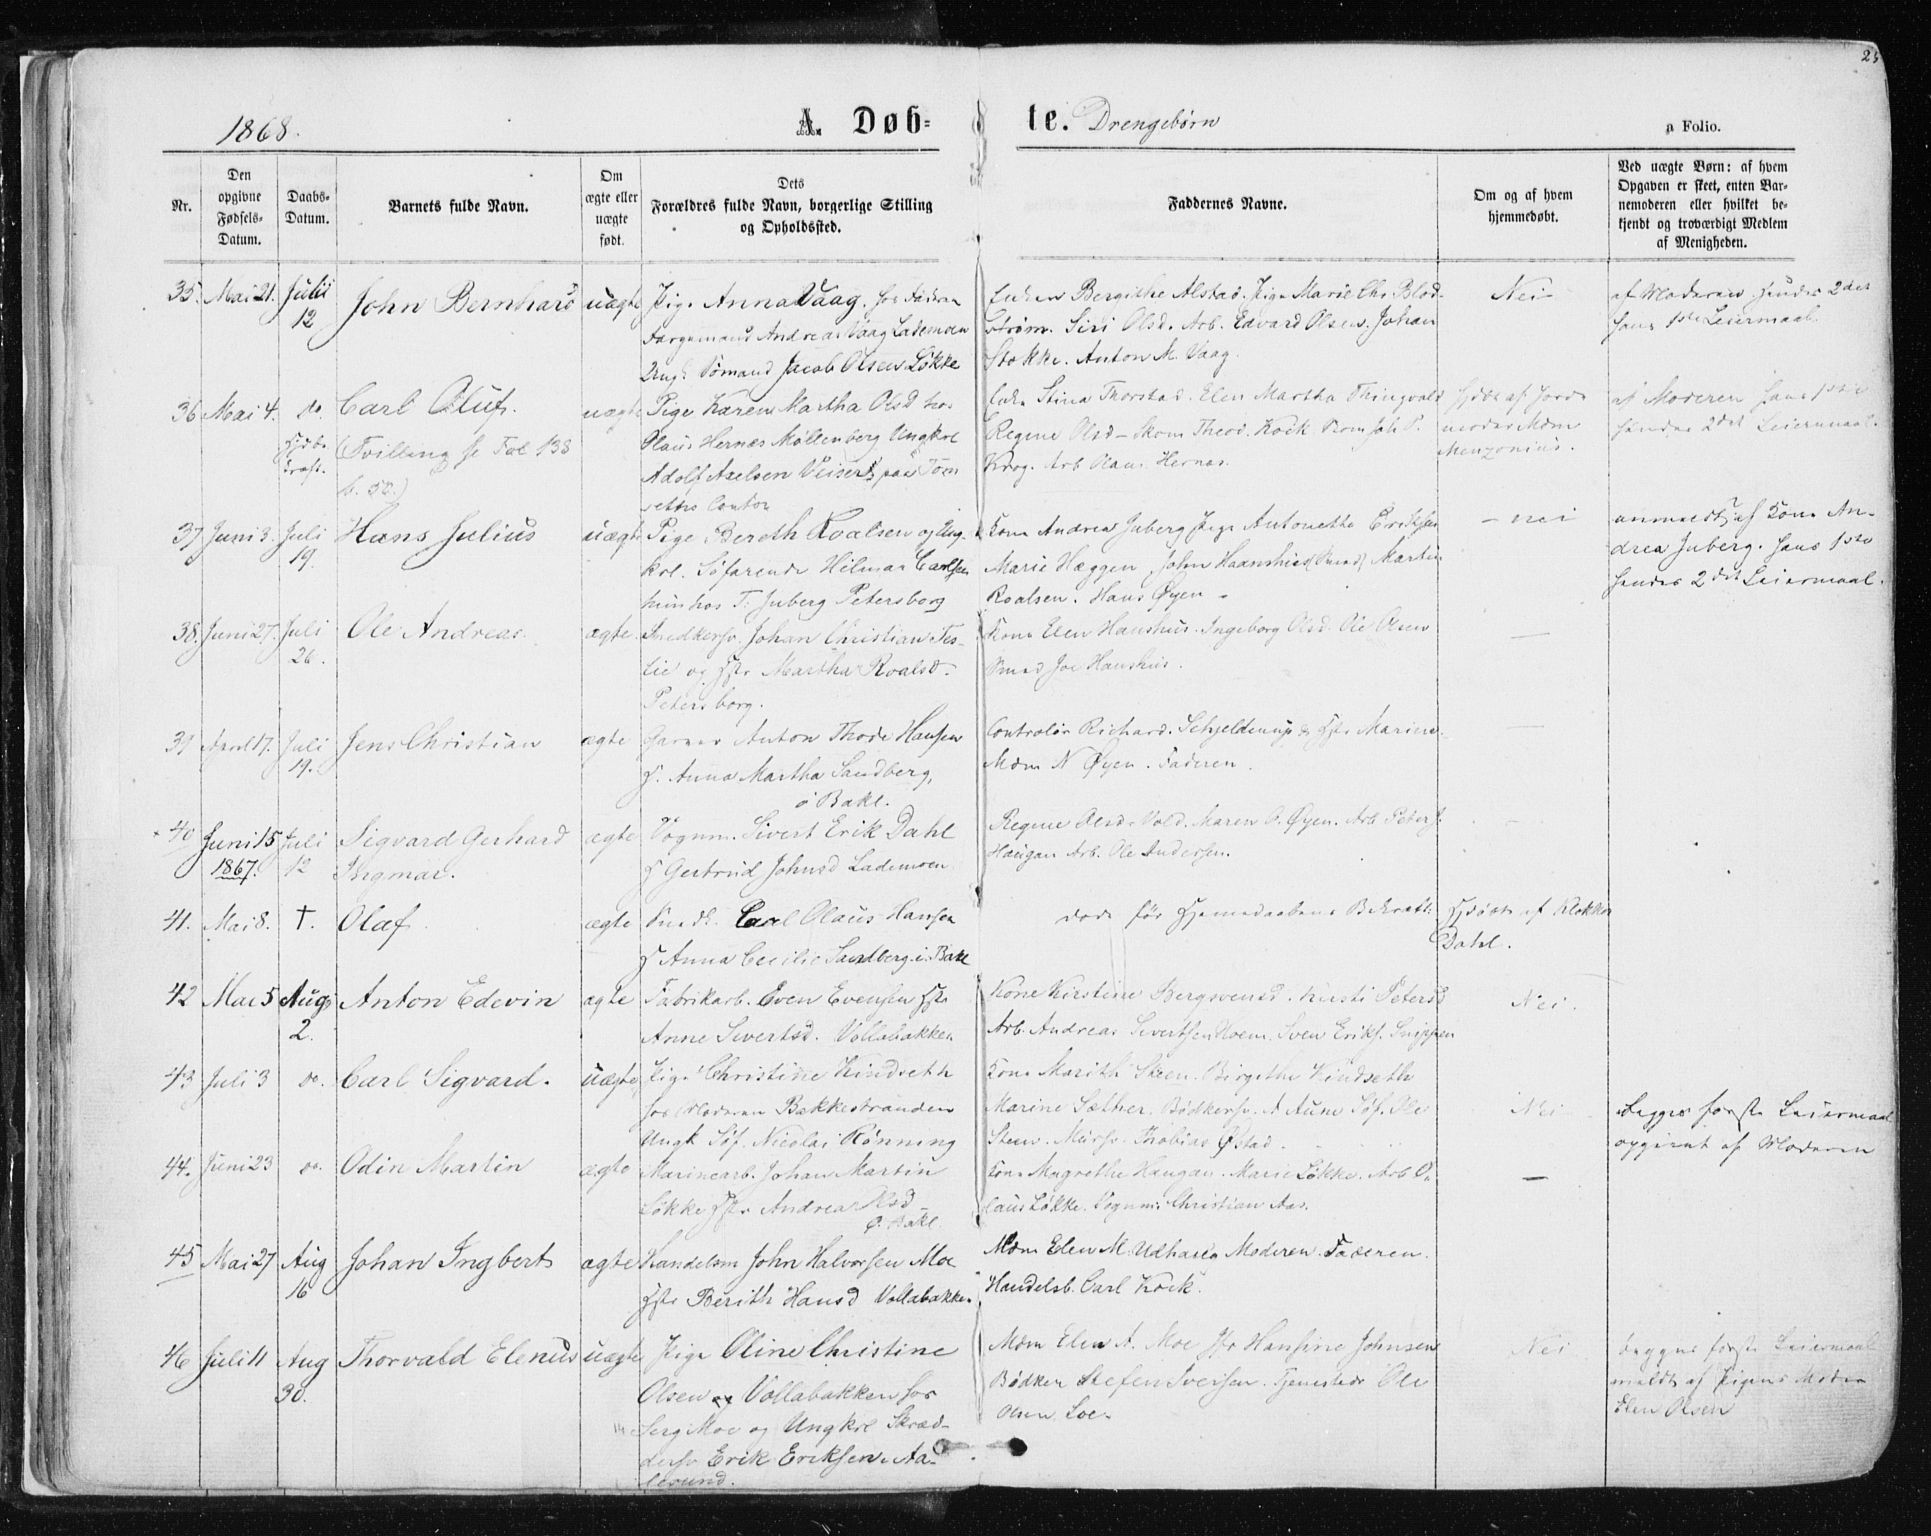 25
1868.
A. Døb=
te. Drengebørn
a Folio.
Nr.
Den opgivne Fødsels-Datum.
Daabs-Datum.
Barnets fulde Navn.
Om ægte eller uægte født.
Dets Forældres fulde Navn, borgerlige Stilling og Opholdssted.
Faddernes Navne.
Om og af hvem hjemmedøbt.
Ved uægte Børn: af hvem Opgaven er skeet, enten Barnemoderen eller hvilket bekjendt og troværdigt Medlem af Menigheden.
35. Mai 21. Julii John Bernhard uægte Pige Anna Vaag. hos Faderen
12 Andreas Vaag Lademoen
Ungk. Sømand Jacob Olsen Løkke
Bergithe Alstad. Pige Marie Chr. Blod-
strøm. Siri Olsd. Arb. Edvard Olsen. Johan
Stokke. Anton M. Vaag.
Nei
af Moderen, hendes 2det
hans 1ste Leiermaal.
36 Mai 4. do Carl Oluf. uægte Pige Karen Martha Olsd hos
(Tvilling se Fol 138 Olaus Hernæs Møllenberg Ungkrl
b. 50.) Adolf Axelsen Veisert paa Tom
settes Contor
Stina Thorstad. Elen Martha Thingvold
Regene Olsd - Skom Theod. Kock Joh P.
Krog. Arb Olaus Hernæs.
Hjdbt af Jorde
moder Mdm
Menzonius.
af Moderen hans 1ste
hendes 2det Leiermaal.
37 Juni 3. Juli Hans Julius uægte Pige Bereth Roalsen og Ung-
19. krl. Søfarende Hilmar Carlsen
hun hos T. Juberg Petersborg
Kone Andrea Juberg Pige Antonette Eriksen
Marie Hæggen. John Haanshus (Smed) Martin
Roalsen. Hans Øyen -
- nei
anmeldt af Kone An-
drea Juberg. hans 1ste
hendes 2det Leiermaal.
38. Juni 27. Juli Ole Andreas. ægte Snedkersv. Johan Christian Tes-
26. lie og Hstr Martha Roalsd.
Petersborg.
Kone Elen Haushus. Ingeborg Olsd. Ole Olsen
Smed Joe Haushus.
39 April 17. Juli Jens Christian ægte Garver Anton Thode Hansen
19. H. Anna Martha Sandberg,
ø Bakl.
Controlør Richard. Schjelderup & Hstr Marine.
Mdm N Øyen. Faderen.
40 Juni 15 Juli Sigvard Gerhard ægte Vognm. Sivert Erik Dahl
1867. 12 Ingmar. H Gertrud Johnsd Lademoen
Regine Olsd - Vold. Maren O. Øyen. Arb Peter J.
Haugan Arb. Ole Andersen.
41. Mai 8. †. Olaf. ægte Smed. Carl Olaus Hansen
H Anna Cecilie Sandberg i. Bakl
døde før Hjemmedaabens Bekræft.
Hjdøbt af Klokker
Dahl.
42 Mai 5 Aug Anton Edevin ægte Fabrikarb. Even Evensen Hstr
2. Anne Sivertsd. Vollabakken
Kone Kirstine Bergsvensd. Kirsti Petersd
Arb. Andreas Sivertsen Moem. Sven Eriks. Snippen
Nei.
43 Juli 3 do. Carl Sigvard. uægte Pige Christine Kindseth
hos Moderen Bakkestranden
Ungk Søf. Nicolai Rønning
Kone Marith Steen. Birgithe Kindseth
Marine Sæther. Bødkersv. A Aune Søf. Ole
Steen. Mursv. Thobias Østad.
Nei
begges første Leiermaal
opgivet af Moderen
44. Juni 23 do. Odin Martin ægte Marinearb. Johan Martin
Løkke Hstr Andrea Olsd
Ø. Bakl.
Kone Magrethe Haugan. Marie Løkke. Arb O.
laus Løkke. Vognm. Christian Aas.
45 Mai 27 Aug Johan Ingbert ægte Handelsm John Halvorsen Moe
16 Hstr Berith Hansd Vollabakken
Mdm Elen M. Udhaug Moderen. Faderen.
Handelsb. Carl Kock.
46 Juli 11 Aug Thorvald Elenus uægte Pige Oline Christine
30. Olsen Vollabakken hos
Serg Moe og Ungkrl Skræd-
dersv Erik Eriksen. Aa-
lesund.
Mdm Elen A. Moe Jfr Hansine Johnsen
Bødker Stefen Iversen. Tjenestedr Ole
Olsen Loe.
Nei
begges første Leiermaal
meldt af Pigens Moder
Elen Olsen